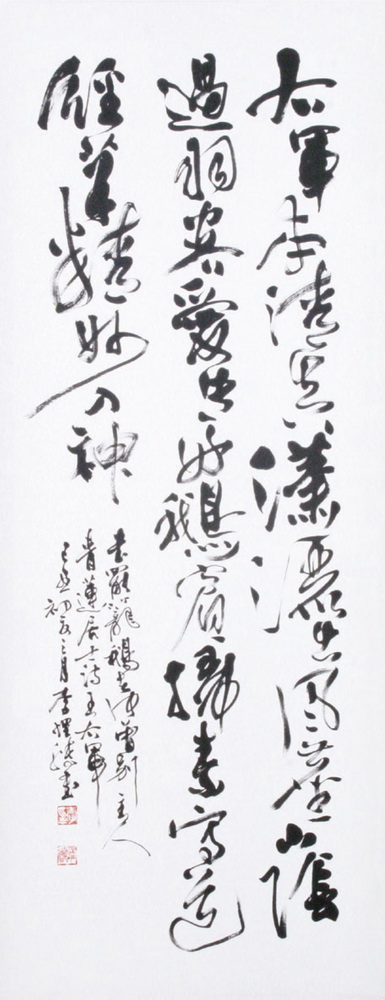 右軍本清真瀟灑出風塵山陰
過羽客愛此好鵝賓掃素寫道
經筆精妙入神
書罷籠鵝去何曾別主人
青蓮居士詩王右軍
初夏之月李